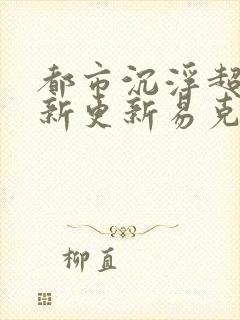 都市沉浮超
新更新易克
柳直